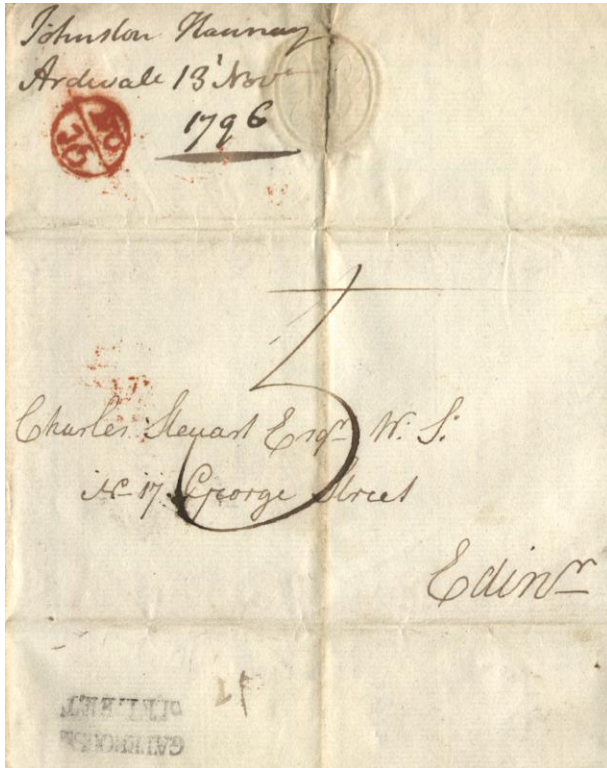 Johnston Hannay
Ardwall 13 Nov.
1796
NO
15
5
Charles Steuart Esqr. W. S.
No 17 George Street
Edinr
GATEHOUSE
OF FLEET